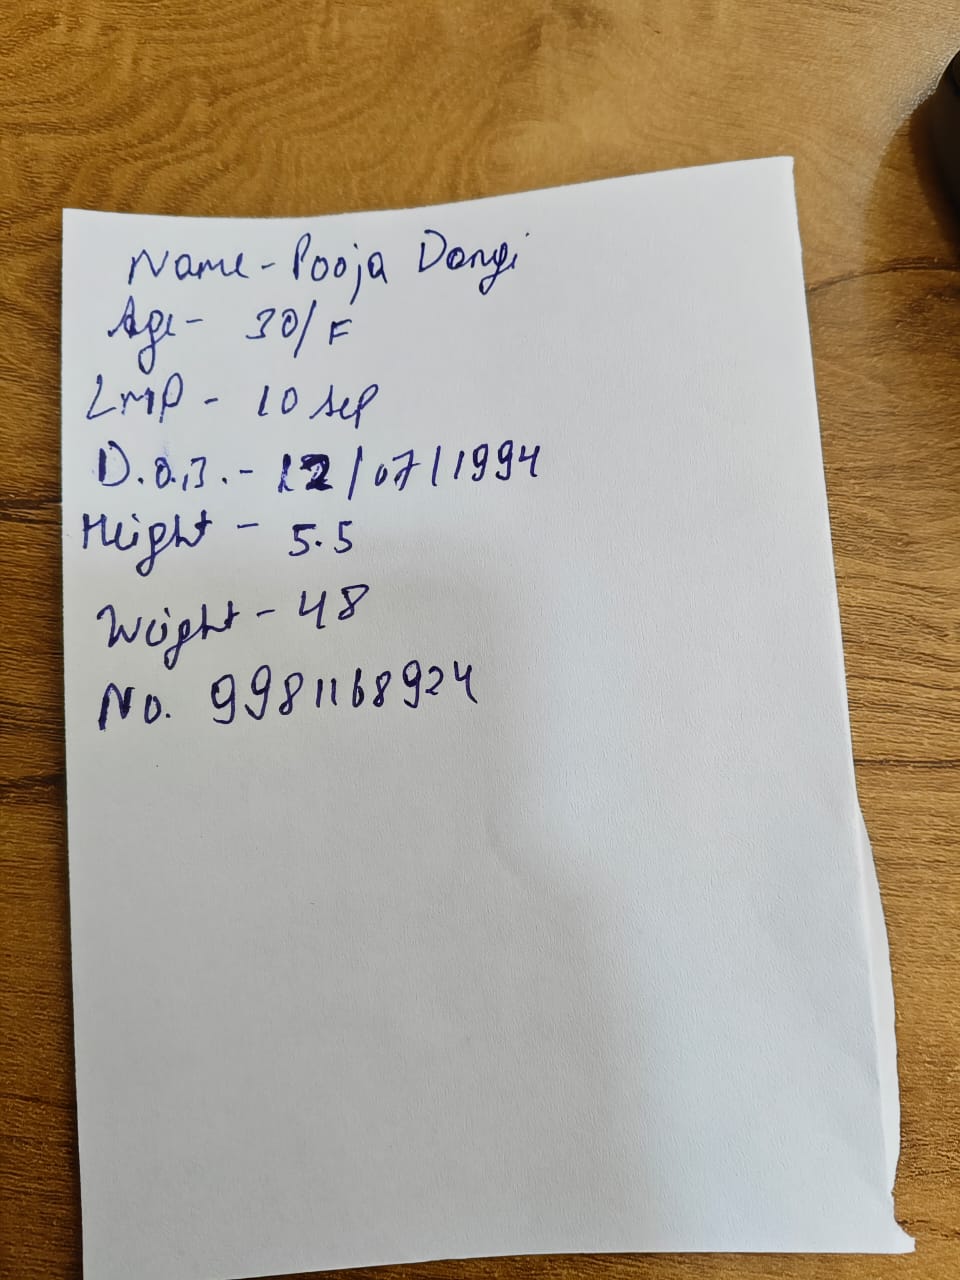 Name - Pooja Dangi
Age - 30/F
LMP - 10 sep
D.O.B. - 12/07/1994
Height - 5.5
Weight - 48
No. 9981168924